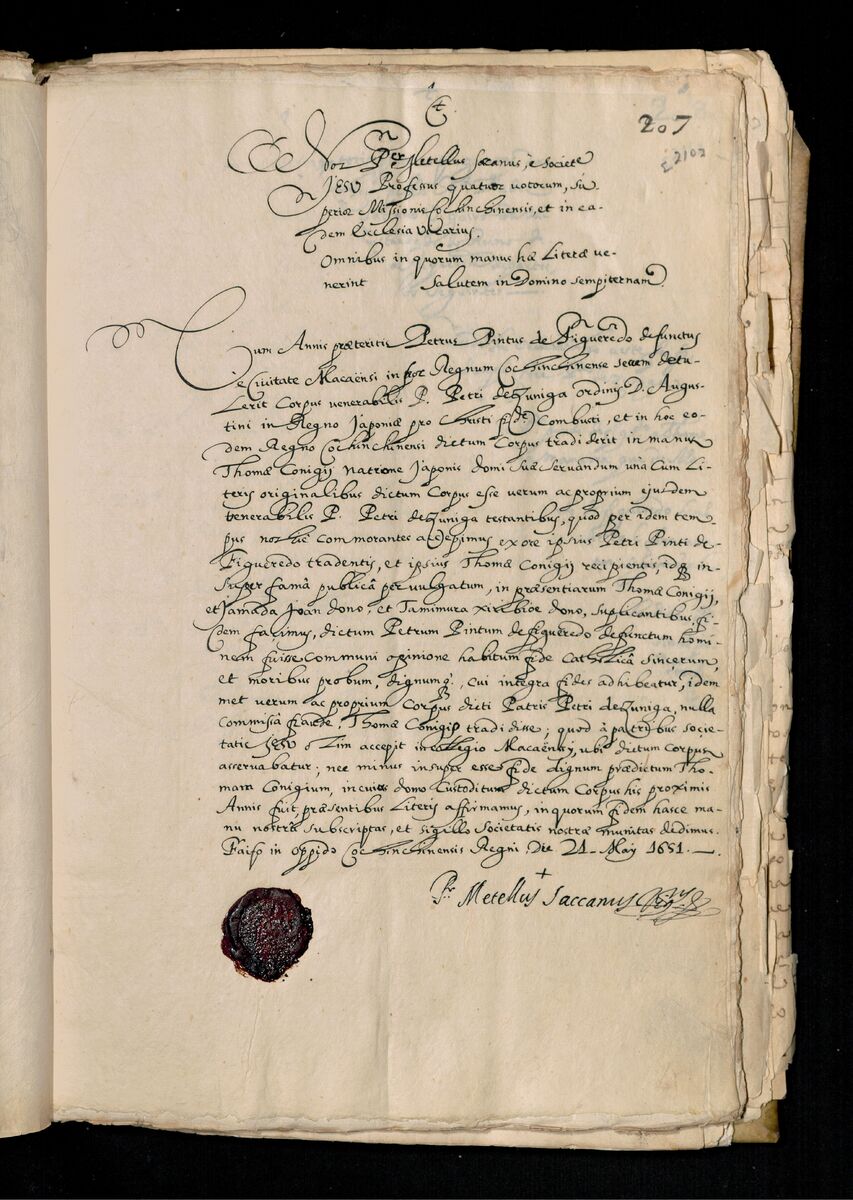 207
2102
Nos Pr Metellus Saccanus, è Societe
JESV Professus quatuor uotorum, Su
perior Missionis Cochinchinensis, et in ea-
dem Ecclesia Vicarius.
Omnibus in quorum manus hæ Literæ ve-
nerint Salutem in Domino sempiternam.
Cum Annis præteritis Petrus Pintus de Figueredo defunctus
è Civitate Macaënsi in hoc Regnum Cochinchinense secum detu-
lerit Corpus venerabilis P. Petri de Zuniga ordinis D. Augus-
tini in Regno Japoniæ pro Christi fide Combusti, et in hoc eo-
dem Regno Cochinchinensi dictum Corpus tradiderit in manus
Thomæ Conigij natione Japonis domi suæ servandum unà Cum Li-
teris originalibus dictum Corpus esse verum ac proprium ejusdem
venerabilis P. Petri de Zuniga testantibus, quod per idem tem-
pus nos hic commorantes accepimus ex ore ipsius Petri Pinti de
Figueredo tradentis, et ipsius Thomæ Conigij recipientis, idq in-
super famâ publicâ per vulgatum, in præsentiarum Thomæ Conigij,
et Jamada Joan dono, et Tamimura xirobioe dono, suplicantibus, fi-
dem facimus, dictum Petrum Pintum de Figueredo defunctum homi-
nem fuisse communi opinione habitum fide Catholicâ sincerum,
et moribus probum, dignumq, cui integra fides adhibeatur, idem
met verum ac proprium Corpus dicti Patris Petri de Zuniga, nulla
commissâ fraude, Thomæ Conigio tradidisse; quod à patribus Socie-
tatis JESV olim accepit in Collegio Macaënsi, ubi dictum Corpus
asservabatur; nec minus insuper esse fide dignum prædictum Tho-
mam Conigium, in cuius domo Custoditum dictum Corpus his proximis
Annis fuit, præsentibus Literis affirmamus, in quorum fidem hasce ma-
nu nostra subscriptas, et sigillo Societatis nostræ munitas dedimus.
Faifo in oppido Cochinchinensis Regni, Die 21 May 1651.
Pr Metellus Saccanus